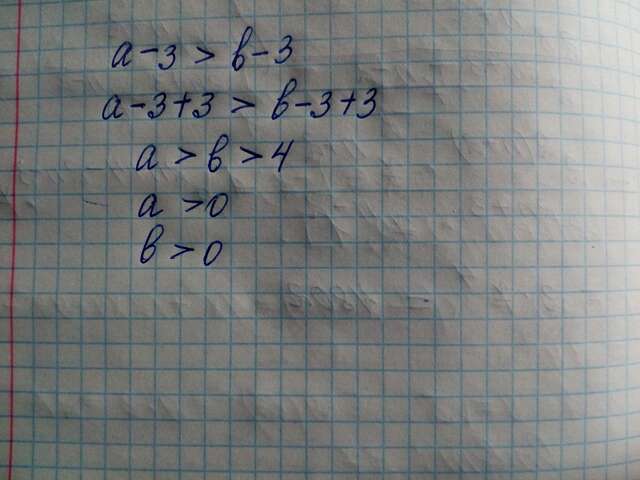 a-3 > b-3
a-3+3 > b-3+3
a > b > 4
a > 0
b > 0